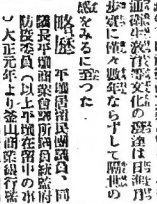 通衛生教育等文化の發達は日進月
歩實に僅々數年ならずして隔世の
感をみるに至つた
略歴 平壤居留民團議員、同
議長平壤商業會議所議員統監府
防疫委員（以上平壤在留中の
）大正元年より釜山商業銀行